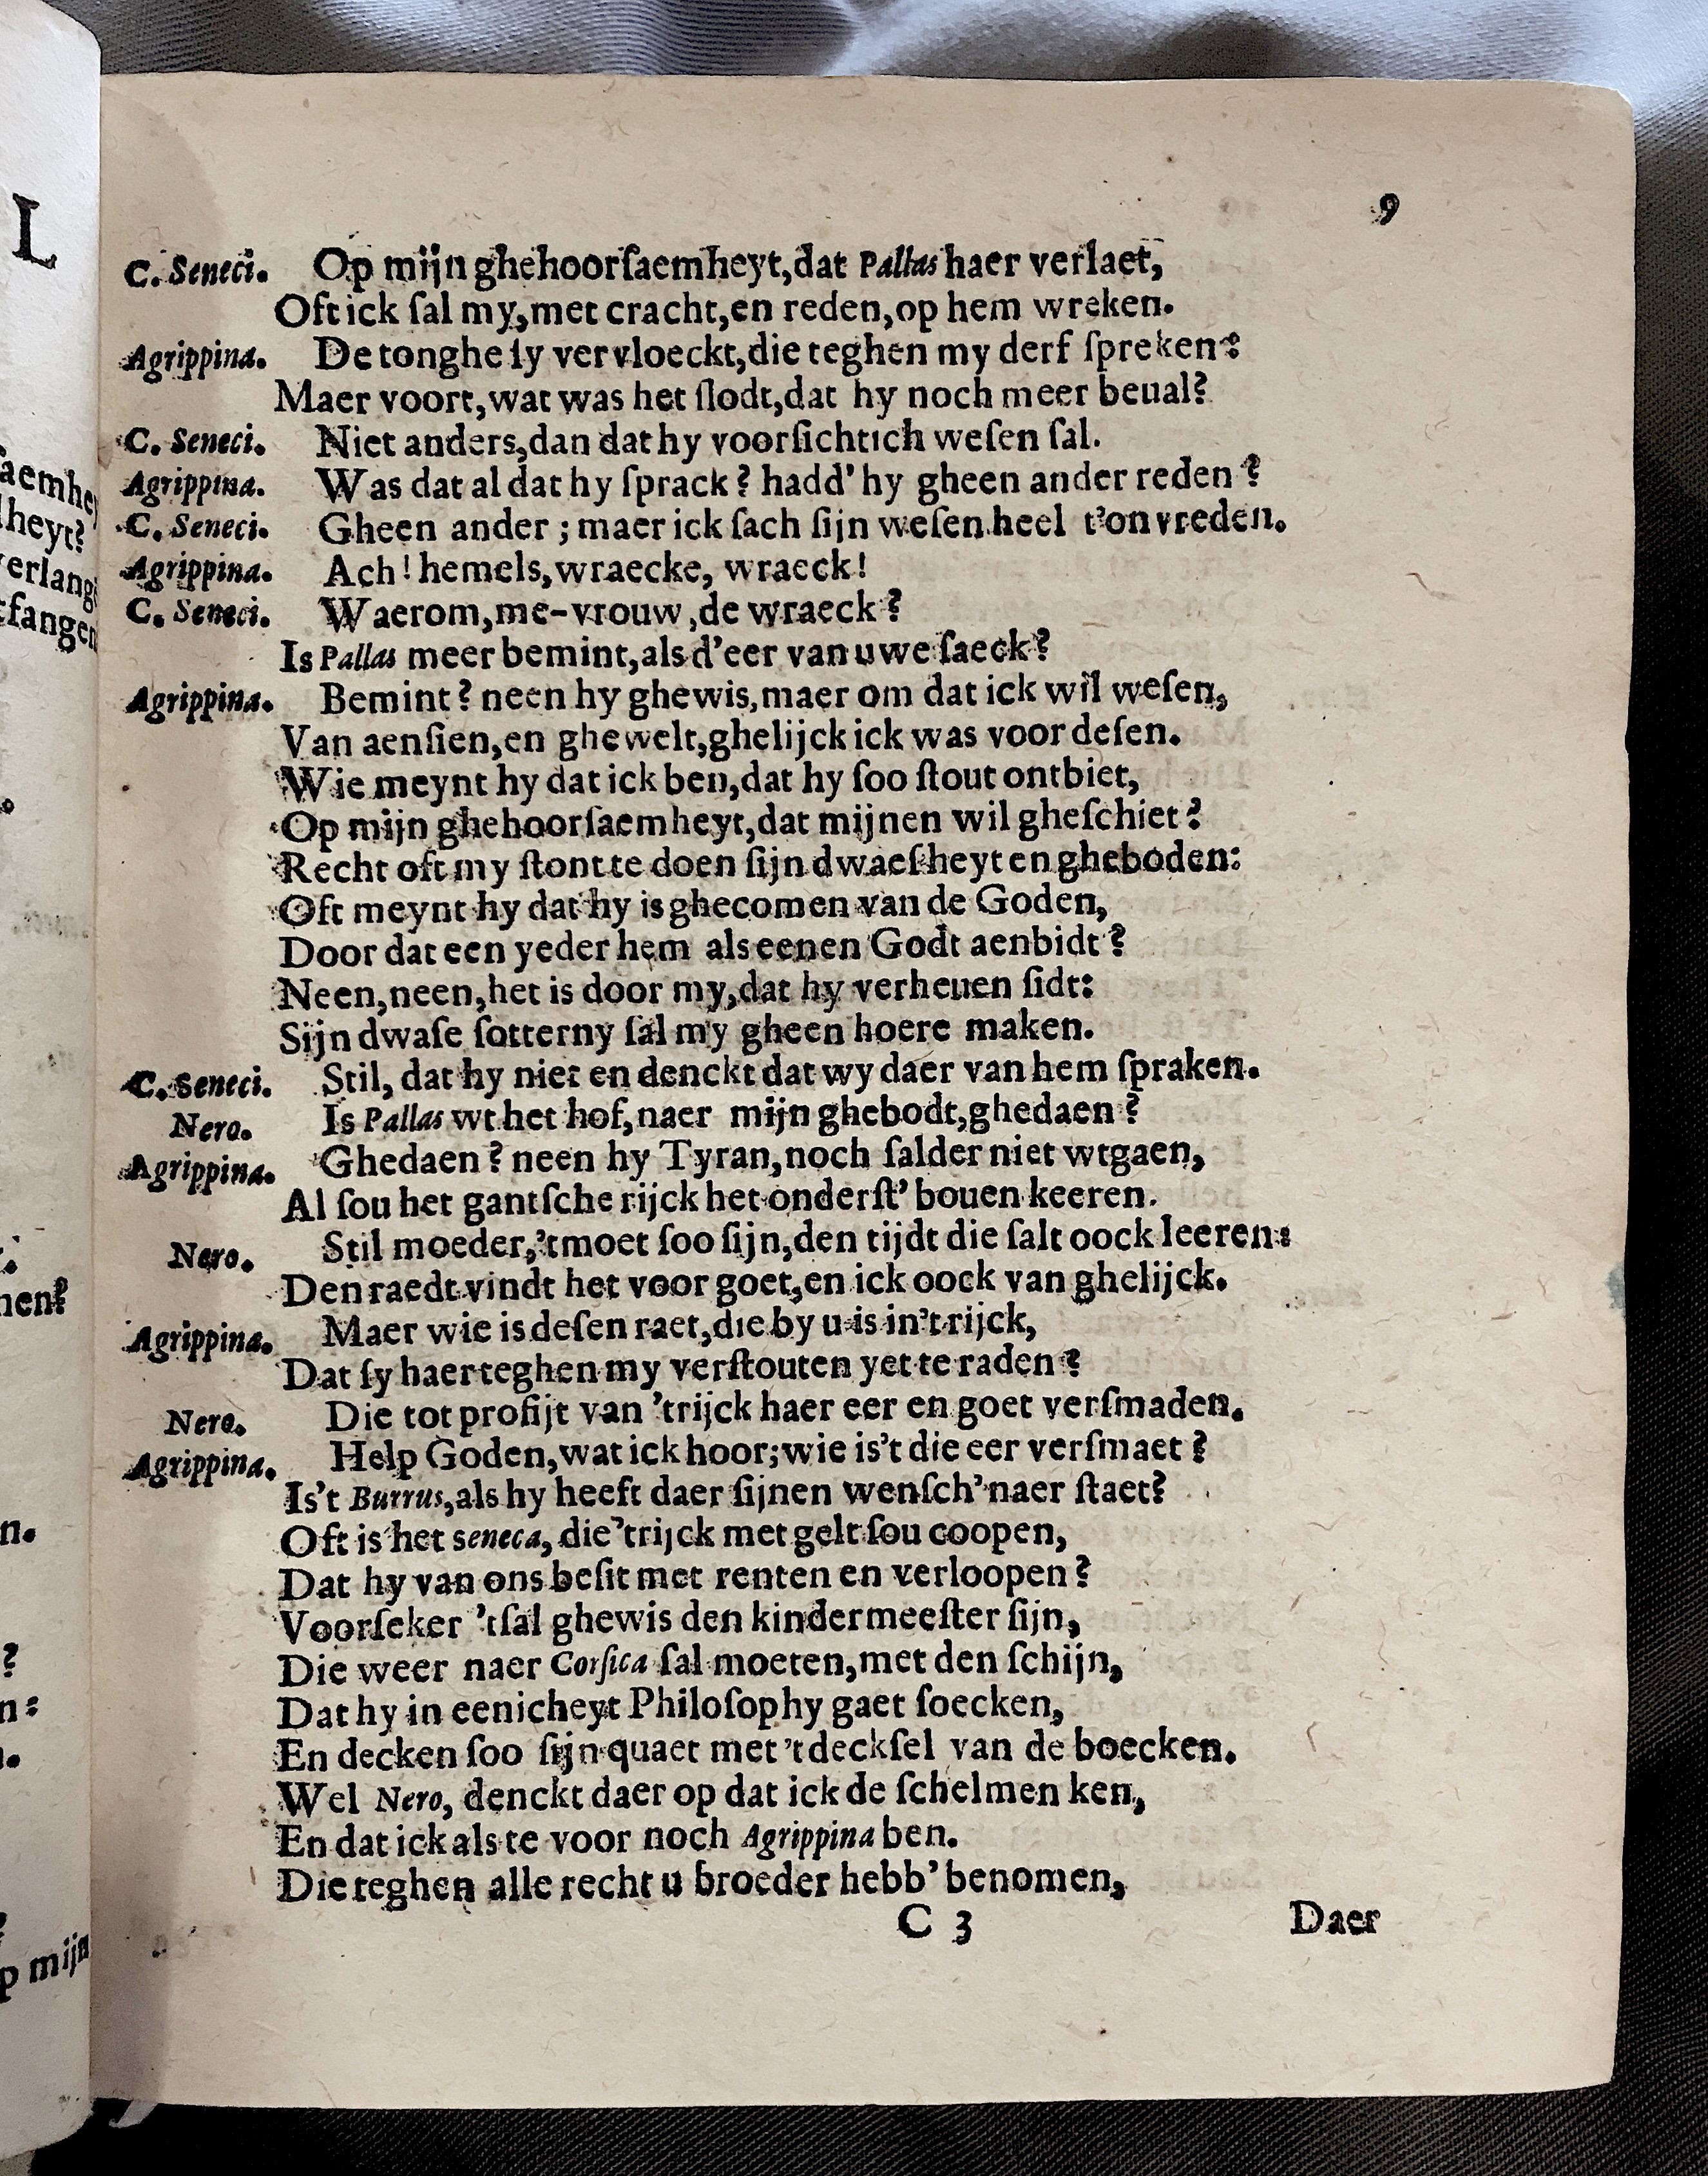 L
9
C. Seneci. Op mijn ghehoorſaemheyt,dat Pallas haer verlaet,
Oft ick ſal my,met cracht,en reden,op hem wreken.
Agrippina. De tonghe ſy vervloeckt,die teghen my derf ſpreken:
Maer voort,wat was het ſlodt,dat hy noch meer beual?
C. Seneci. Niet anders,dan dat hy voorſichtich weſen ſal.
Agrippina. Was dat al dat hy ſprack? hadd' hy gheen ander reden?
C. Seneci. Gheen ander ; maer ick ſach ſijn weſen heel t'onvreden.
Agrippina. Ach! hemels,wraecke, wraeck!
C. Seneci. Waerom,me-vrouw,de wraeck?
Is Pallas meer bemint,als d'eer van uwe ſaeck?
Agrippina. Bemint? neen hy ghewis,maer om dat ick wil weſen,
Van aenſien,en ghewelt,ghelijck ick was voor deſen.
Wie meynt hy dat ick ben,dat hy ſoo ſtout ontbiet,
Op mijn ghehoorſaemheyt,dat mijnen wil gheſchiet?
Recht oft my ſtont te doen ſijn dwaeſheyt en gheboden:
Oft meynt hy dat hy is ghecomen van de Goden,
Door dat een yeder hem als eenen Godt aenbidt?
Neen,neen,het is door my,dat hy verheuen ſidt:
Sijn dwaſe ſotterny ſal my gheen hoere maken.
C. Seneci. Stil, dat hy niet en denckt dat wy daer van hem ſpraken.
Nero. Is Pallas wt het hof,naer mijn ghebodt,ghedaen?
Agrippina. Ghedaen? neen hy Tyran,noch ſalder niet wtgaen,
Al ſou het gantſche rijck het onderſt' bouen keeren.
Nero. Stil moeder,'t moet ſoo ſijn,den tijdt die ſalt oock leeren:
Den raedt vindt het voor goet,en ick oock van ghelijck.
Agrippina. Maer wie is deſen raet,die by u is in't rijck,
Dat ſy haer teghen my verſtouten yet te raden?
Nero. Die tot profijt van 'trijck haer eer en goet verſmaden.
Agrippina. Help Goden,wat ick hoor;wie is't die eer verſmaet?
Is't Burrus,als hy heeft daer ſijnen wenſch' naer ſtaet?
Oft is het Seneca, die 'trijck met gelt ſou coopen,
Dat hy van ons beſit met renten en verloopen?
Voorſeker 'tſal ghewis den kindermeeſter ſijn,
Die weer naer Corſica ſal moeten,met den ſchijn,
Dat hy in eenicheyt Philoſophy gaet ſoecken,
En decken ſoo ſijn quaet met 't deckſel van de boecken.
Wel Nero, denckt daer op dat ick de ſchelmen ken,
En dat ick als te voor noch Agrippina ben.
Die teghen alle recht u broeder hebb' benomen,
C 3 Daer